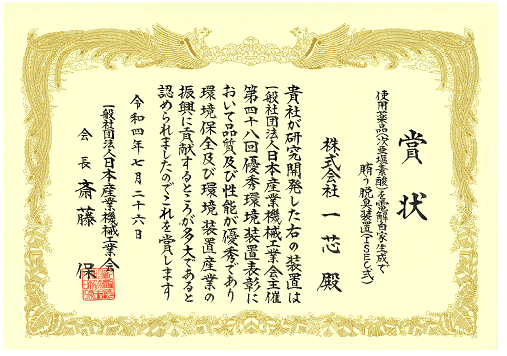 賞状
使用薬品(次亜塩素酸)を電解自家生成で
賄う脱臭装置(ISEC式)
株式会社 一芯 殿
貴社が研究開発した右の装置は
一般社団法人日本産業機械工業会主催
第四十八回優秀環境装置表彰に
おいて品質及び性能が優秀であり
環境保全及び環境装置産業の
振興に貢献するところが多大であると
認められましたのでこれを賞します
令和四年七月二十六日
一般社団法人日本産業機械工業会
会長 斎藤 保